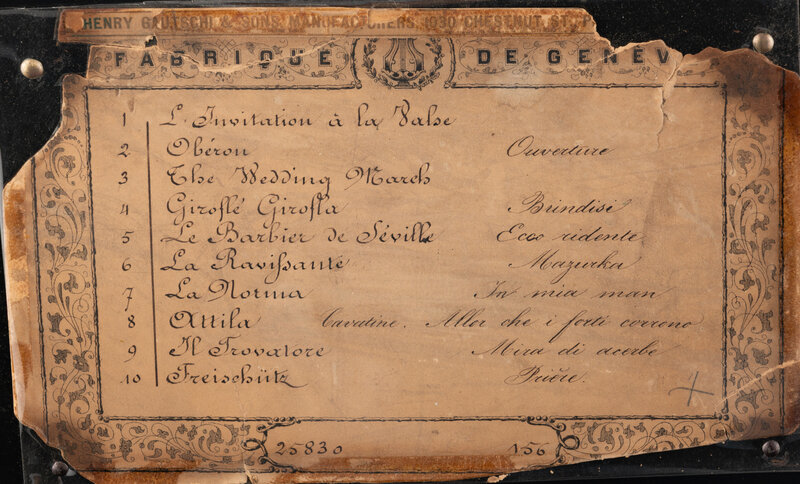 HENRY GAUTSCHI & SONS, MANUFACTURERS, 1030 CHESTNUT ST., P
FABRIQUE DE GENÈV
1 L'Invitation à la Valse
2 Obéron Ouverture
3 The Wedding March
4 Giroflé Girofla Brindisi
5 Le Barbier de Séville Ecco ridente
6 La Ravissante Mazurka
7 La Norma In mia man
8 Attila Cavatine. Allor che i forti corrono
9 Il Trovatore Mira di acerbe
10 Freischütz Prière.
25830 156